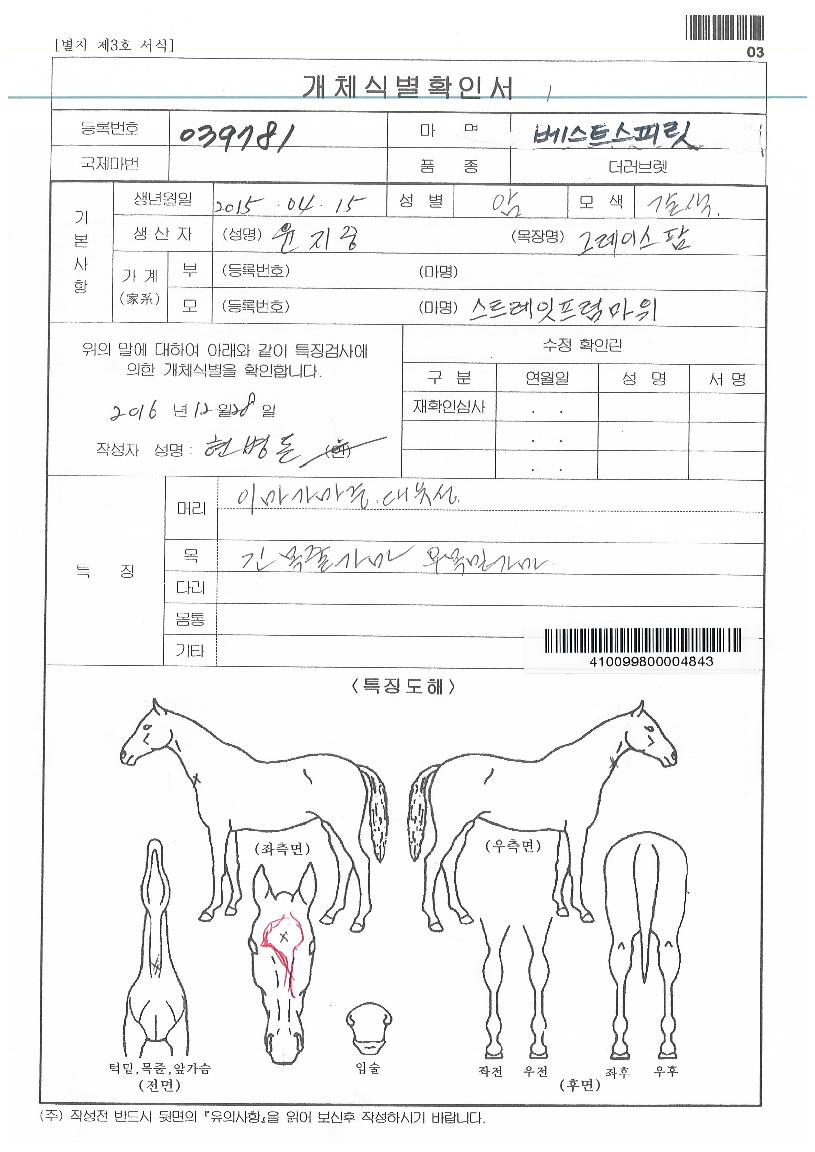 [별지 제3호 서식]
03
개체식별확인서
등록번호 039781 마 명 베스트스피릿
국제마번 품 종 더러브렛
기본사항
생년월일 2015 . 04 . 15 성 별 암 모 색 갈색.
생 산 자 (성명) 윤지웅 (목장명) 그레이스팜
가 계 (家系) 부 (등록번호) (마명)
모 (등록번호) (마명) 스트레잇프럼마위
위의 말에 대하여 아래와 같이 특징검사에
의한 개체식별을 확인합니다.
2016 년 12 월 28 일
작성자 성명 : 현병돈 (인)
수정 확인란
구 분 연월일 성 명 서 명
재확인심사 . .
. .
. .
특 징
머리 이마가마중.대유성.
목 긴 목줄가마
다리
몸통
기타
410099800004843
<특징도해>
(좌측면) (우측면)
턱밑,목줄,앞가슴
(전면)
입술
좌전 우전 좌후 우후
(후면)
(주) 작성전 반드시 뒷면의 『유의사항』을 읽어 보신후 작성하시기 바랍니다.